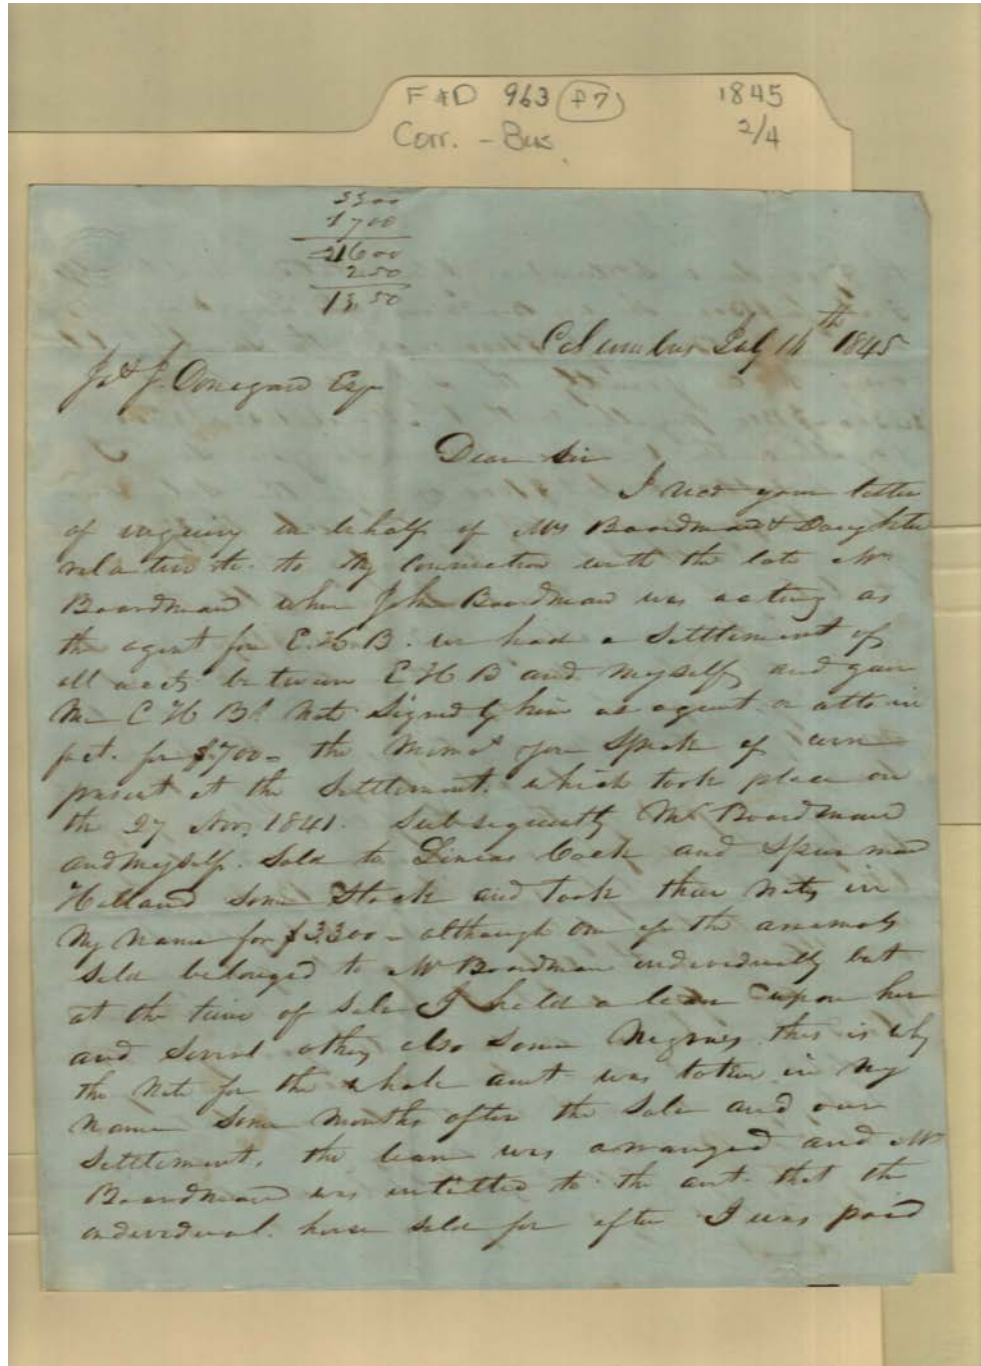 F&D 963 (F7) 1845
Corr. - Bus. 2/4
3300
1700
1600
250
13.50
Columbus July 14th 1845
Jas J. Donegan Esq
Dear Sir
I recd your letter
of inquiry in behalf of Mrs Boardman & Daughter
relative to to my connection with the late Mr
Boardman when John Boardman was acting as
the agent for E. H. B. we had a settlement of
all accts between E H B and myself and gave
me E H Bs Note signed by him as agent or atto in
fact. for $1700 - the you speak of were
present at the settlement. which took place on
the 27 Nov, 1841. Subsequently Mr Boardman
and myself. Sold to Cock and
Holland some Stock and took their note in
my name for $3300 - although one of the animals
sold belonged to Mr Boardman individually but
at the time of sale I held a lean upon her
and several others also some Negroes this is why
the Note for the whole amt was taken in my
name some months after the sale and our
settlement, the lean was arranged and Mr
Boardman was intitled to the amt. that the
individual horse sold for after I was paid